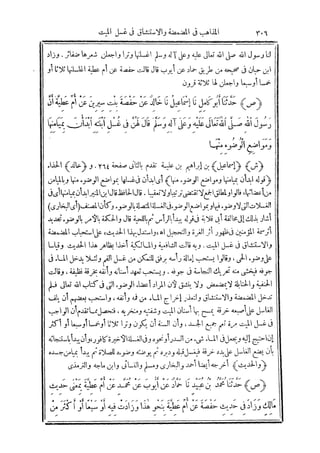 ٣٠٦ المذاهب فى المضمضة والاستنشاق فى غسل الميت
لنا رسول الله صلى الله تعالى عليه وعلى آله وسلم اغسلنها وترا واجعلن شعرها ضفائر. وزاد
ابن حبان فى صحيحه من طريق حماد عن أيوب قال قالت حفصة عن أم عطية اغسلنها ثلاثا أو
خمسا أو سبعا واجعلن لها ثلاثة قرون
﴿ص﴾ حَدَّثَنَا أَبُو كَامِلٍ نَا إِسْمَاعِيلُ نَا خَالِدٌ عَنْ حَفْصَةَ بِنْتِ سِيرِينَ عَنْ أُمِّ عَطِيَّةَ أَنَّ
رَسُولَ اللهِ صَلَّى اللهُ تَعَالَى عَلَيْهِ وَعَلَى آلِهِ وَسَلَّمَ قَالَ لَهُنَّ فِى غُسْلِ ابْنَتِهِ ابْدَأْنَ بِمَيَامِنِهَا
وَمَوَاضِعِ الْوُضُوءِ مِنْهَا
﴿ش﴾ ﴿إسماعيل﴾ بن إبراهيم بن علية تقدم بالثانى صفحة ٢٦٤. و ﴿خالد﴾ الحذاء
﴿قوله ابدأن بميامنها ومواضع الوضوء منها﴾ أى ابدأن فى غسلها بمواضع الوضوء منها وبالميامن
من أعضائها،
الغسلات التى لا وضوء فيها وبمواضع الوضوء فى الغسلة المتصلة بالوضوء. وكأن المصنف (أى البخارى)
أشار بذلك إلى مخالفة أبى قلابة فى قوله يبدأ بالرأس ثم باللحية قال والحكمة بالأمر بالوضوء تجديد
أثر سمة المؤمنين فى ظهور أثر الغرة والتحجيل اهـ واستدل بهذا الحديث على استحباب المضمضة
والاستنشاق فى غسل الميت. وبه قالت الشافعية والمالكية أخذا بظاهر هذا الحديث وقياسا
على وضوء الحى. وقالوا يستحب إمالة رأسه برفق للتمكن من غسل الفم ولئلا يدخل الماء فى
جوفه فيخشى منه تحريك النجاسة فى جوفه. ويستحب تعهد أسنانه وأنفه بخرقة نظيفة. وقالت
الحنفية والحنابلة لا يمضمض ولا ينشق لأن المراد أعضاء الوضوء التى فى كتاب الله تعالى فلم
تدخل المضمضة والاستنشاق ولتعذر إخراج الماء من فمه وأنفه. واستحب بعضهم أن يلف
الغاسل على إصبعه خرقة يمسح بها أسنان الميت وشفتيه ومنخريه. فتحصل مما تقدم أن الواجب
فى غسل الميت مرة تعم جميع الجسد. وأن السنة أن يكون وترا ثلاثا أو خمسا أو سبعا أو أكثر
إذا احتيج إليه ويجعل فى الماء شىء من السدر أو نحوه وفى الغسلة الأخيرة كافور وأن يبدأ باستنجائه
بأن يضع الغاسل على يده خرقة فيغسل قبله ودبره ثم يوضئه وضوءه للصلاة ثم يبدأ بميامن جسده
﴿والحديث﴾ أخرجه أيضا أحمد والبخارى ومسلم والنسائى وابن ماجه والترمذى
﴿ص﴾ حَدَّثَنَا مُحَمَّدُ بْنُ عُبَيْدٍ نَا حَمَّادٌ عَنْ أَيُّوبَ عَنْ مُحَمَّدٍ عَنْ أُمِّ عَطِيَّةَ بِمَعْنَى حَدِيثِ
مَالِكٍ وَزَادَ فِى حَدِيثِ حَفْصَةَ عَنْ أُمِّ عَطِيَّةَ بِنَحْوِ هَذَا وَزَادَتْ فِيهِ أَوْ سَبْعًا أَوْ أَكْثَرَ مِنْ